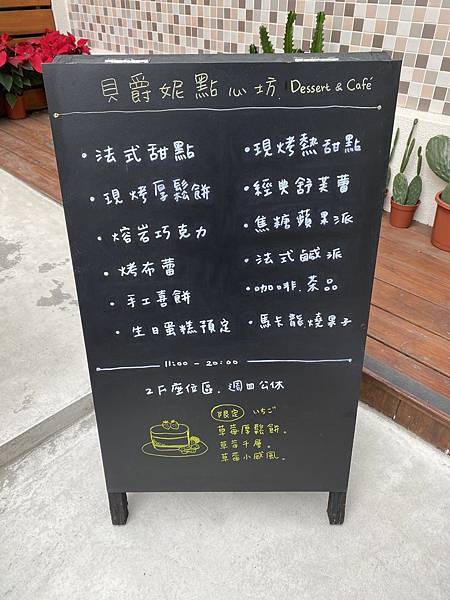 貝爵妮點心坊. Dessert & Café
・法式甜點
・現烤厚鬆餅
・熔岩巧克力
・烤布蕾
・手工喜餅
・生日蛋糕預定
・現烤熱甜點
・經典舒芙蕾
・焦糖蘋果派
・法式鹹派
・咖啡.茶品
・馬卡龍.燒菓子
11:00 - 20:00
2F座位區. 週四公休
限定 いちご
草莓厚鬆餅。
草莓千層。
草莓小戚風。